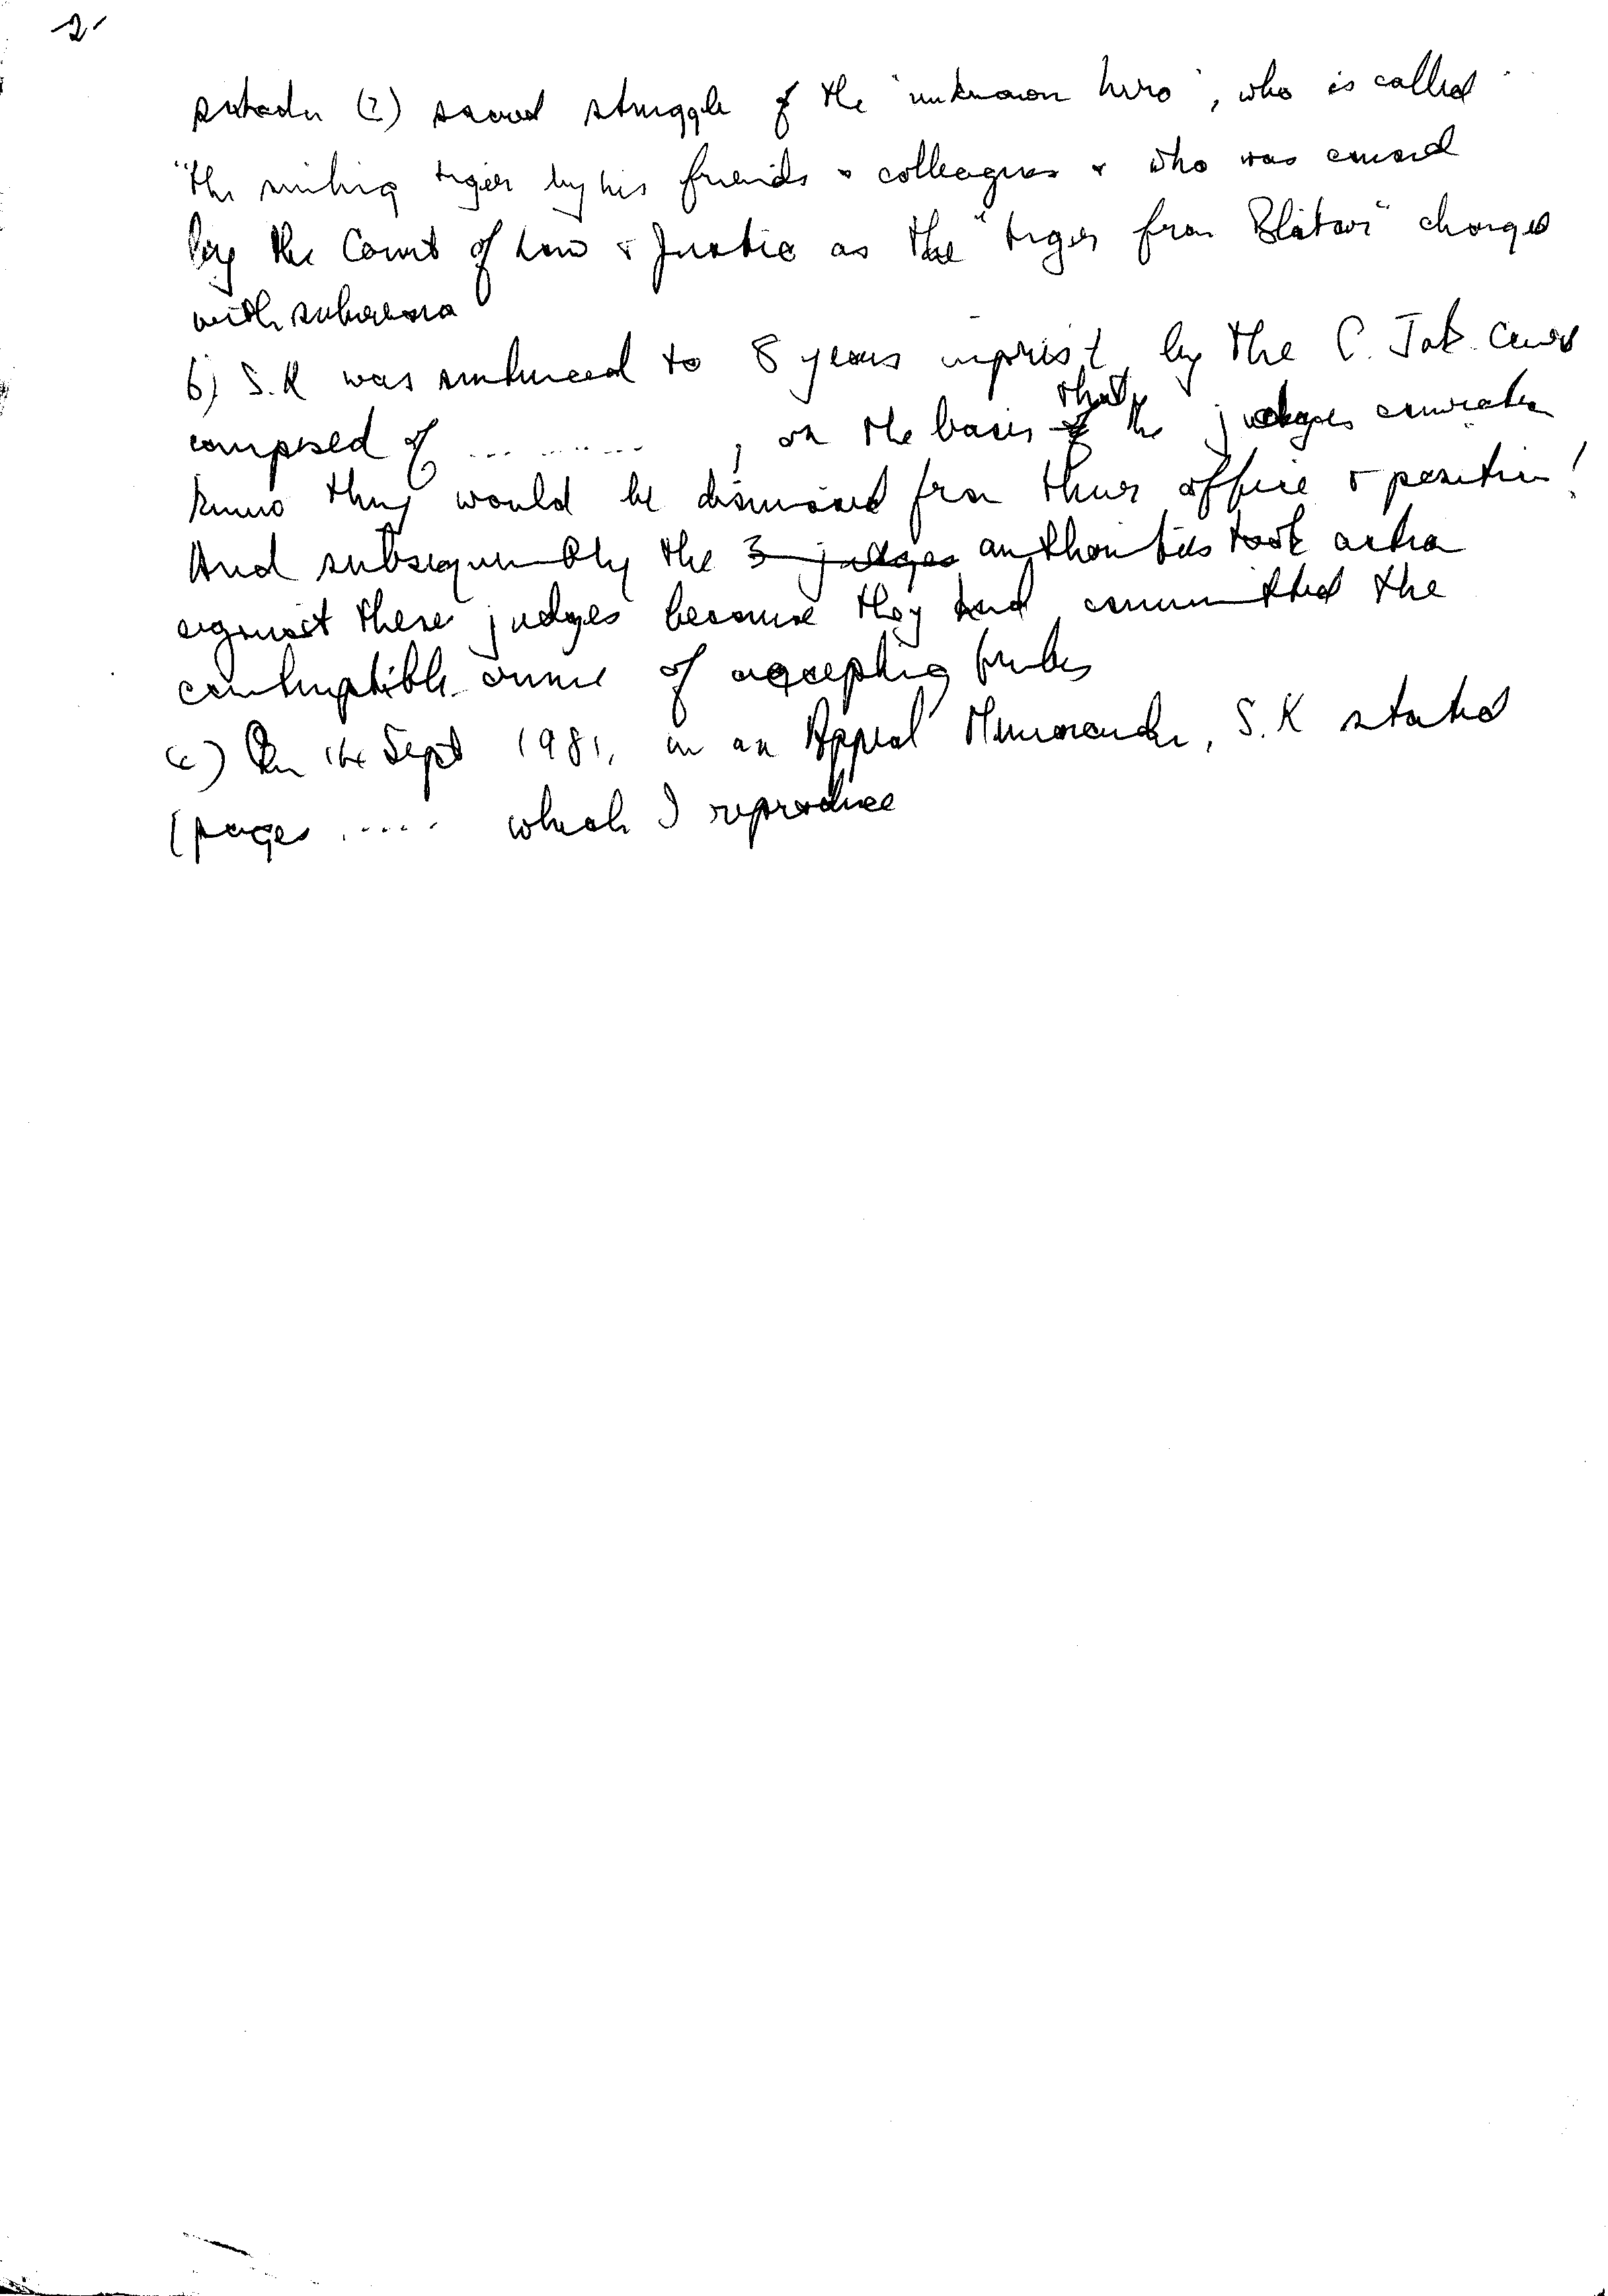 2.
(?) sacred struggle of the "unknown hero", who is called
"the smiling tiger by his friends & colleagues & who was accused
by the Court of Law & Justice as the "tiger from Blitar" charged
with subversion
b) S.K was sentenced to 8 years imprist by the C. Jak. Court
composed of ... ......, on the basis that the judges
knew they would be dismissed from their office & position!
And subsequently the 3 judges authorities took action
against these judges because they had committed the
contemptible crime of accepting bribes
c) On 14 Sept 1981, in an Appeal Memorandum, S.K stated
(pages ..... which I reproduce